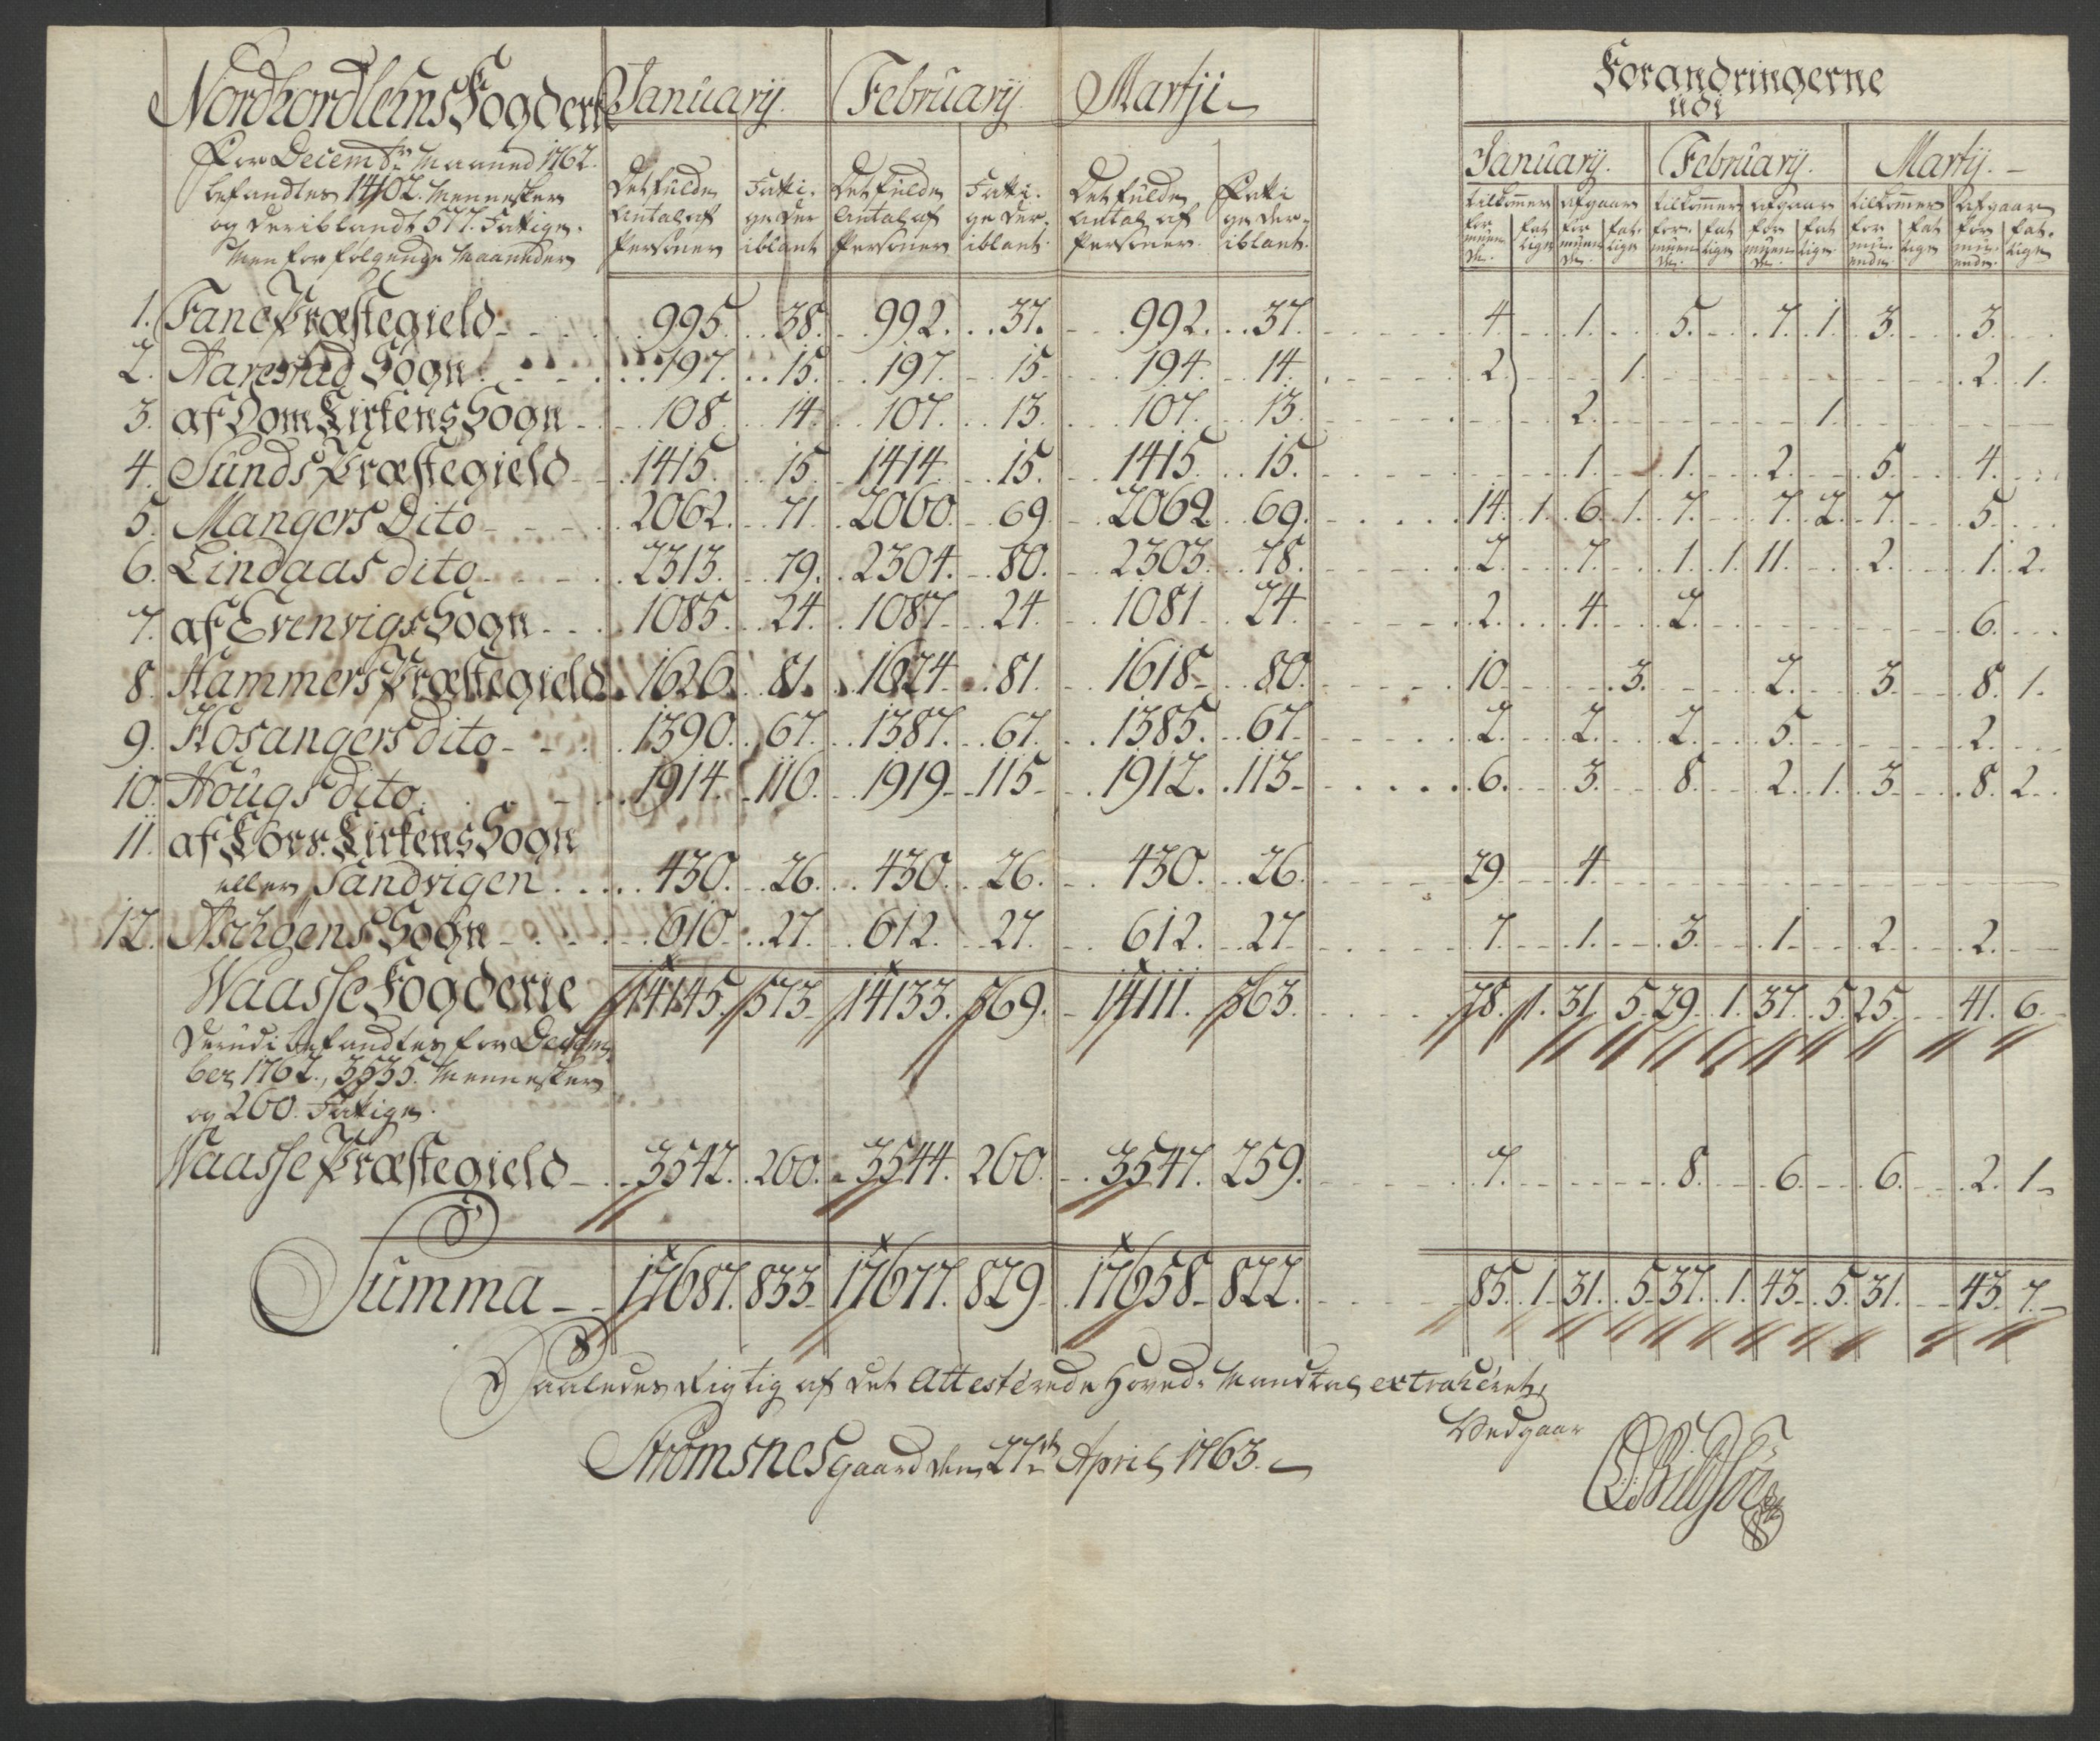 Nordhordlehns Fogderie January. February Martji Forandringerne
udi
January. February. Martij.
For Decembr Maaned 1762.
befandtes 14102. Mennesker
og deriblandt 577. Fattige.
Men for følgende Maaneder
Det fulde Antal af Personer Fattige der iblant Det fulde Antal af Personer Fattige der iblant Det fulde Antal af Personer. Fattige der iblant.
tilkommer afgaar tilkommer afgaar tilkommer afgaar
formuende. fattige formuende. fattige formuende. fattige formuende. fattige formuende. fattige formuende. fattige
1. Fane Præstegield 995. 38. 992. 37. 992. 37. 4. 1. 5. 7. 1. 3. 3.
2. Aarestad Sogn 197. 15. 197. 15 194. 14. 2. 1. 2. 1.
3. af Dom Kirkens Sogn 108 14 107. 13. 107. 13. 2. 1.
4. Sunds Præstegield 1415. 15 1414. 15. 1415. 15. 1. 1. 2. 5. 4.
5. Mangers Dito 2062. 71. 2060. 69. 2062 69. 14. 1. 6. 1. 7. 7. 2. 7. 5.
6. Lindaas dito 2313. 79. 2304. 80. 2303. 78. 2. 7. 1. 1. 11. 2. 1. 2.
7. af Evenvigs Sogn 1085. 24. 1087. 24. 1081 24. 2. 4. 2. 6.
8. Hammers Præstegield 1626. 81. 1624. 81. 1618. 80. 10. 3. 2. 3. 8. 1.
9. Hosangers dito 1390. 67. 1387. 67. 1385. 67. 2. 2. 2. 5. 2.
10. Hougs dito. 1914. 116. 1919. 115 1912. 113 6. 3. 8. 2. 1. 3. 8. 2.
11. af Kors Kirkens Sogn
eller Sandvigen 430. 26. 430. 26. 430. 26. 29. 4.
12. Aschøens Sogn 610. 27. 612. 27. 612. 27. 7. 1. 3. 1. 2. 2.
Waasse Fogderie 14145. 573. 14133. 569. 14111. 563. 78. 1. 31. 5. 29. 1. 37. 5. 25. 41. 6.
Derudi befandtes for Decem
ber 1762., 3535. Mennesker
og 260. Fattige.
Waasse Præstegield 3542. 260. 3544. 260. 3547. 259. 7. 8. 6. 6. 2. 1
Summa 17687. 833 17677. 829 17658 822. 85. 1. 31. 5. 37. 1. 43. 5. 31. 43. 7.
Saaledes rigtig af det Attesterede Hoved Mandtal extraheret,
Vedgaar
Strømsnes gaard den 27de April 1763.